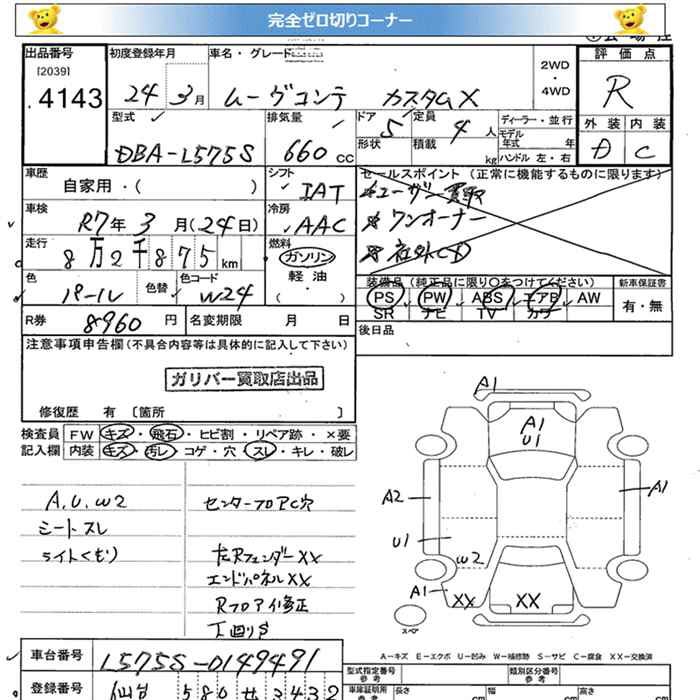 完全ゼロ切りコーナー
出品番号 初度登録年月 車名・グレード 評価点
[2039] 2WD
4143 24年 3月 ムーヴコンテ カスタムX ・ R
4WD
型式 排気量 ドア 定員 ディーラー・並行 外装 内装
DBA-L575S 660cc 5 4人 モデル年式 年式
形状 積載 kg ハンドル 左・右 D C
車歴 シフト セールスポイント (正常に機能するものに限ります)
自家用・( ) IAT ユーザー買取
車検 冷房 ワンオーナー
R7年 3月(24日) AAC 社外CD
走行 燃料
8万2千875km ガソリン
色 色替 色コード 軽油 装備品 (純正品に限り〇をつけてください) 新車保証書
パール W24 ( ・ ) PS PW ABS エアB AW 有・無
SR ナビ TV カワ
R券 8960円 名変期限 月 日 後日品
注意事項申告欄(不具合内容等は具体的に記入して下さい)
ガリバー買取店出品
修復歴 有 〔箇所 〕
検査員 FW キズ・飛石・ヒビ割・リペア跡・×要
記入欄 内装 キズ・汚レ・コゲ・穴・スレ・キレ・破レ
A.U.W2 センターフロアC穴
シートスレ
ライトくもり 右Rフェンダー XX
エンドパネル XX
Rフロア修正
下回りS
A1
A1
U1
A2 A1
U1
W2
A1
XX XX
スペア
A-キズ E-エクボ U-凹み W-補修跡 S-サビ C-腐食 XX-交換済
車台番号 L575S-0149491 型式指定番号 類別区分番号
参考 参考
登録番号 仙台 580 せ 3432 車庫証明用 長さ 幅 高さ
参考 cm cm cm